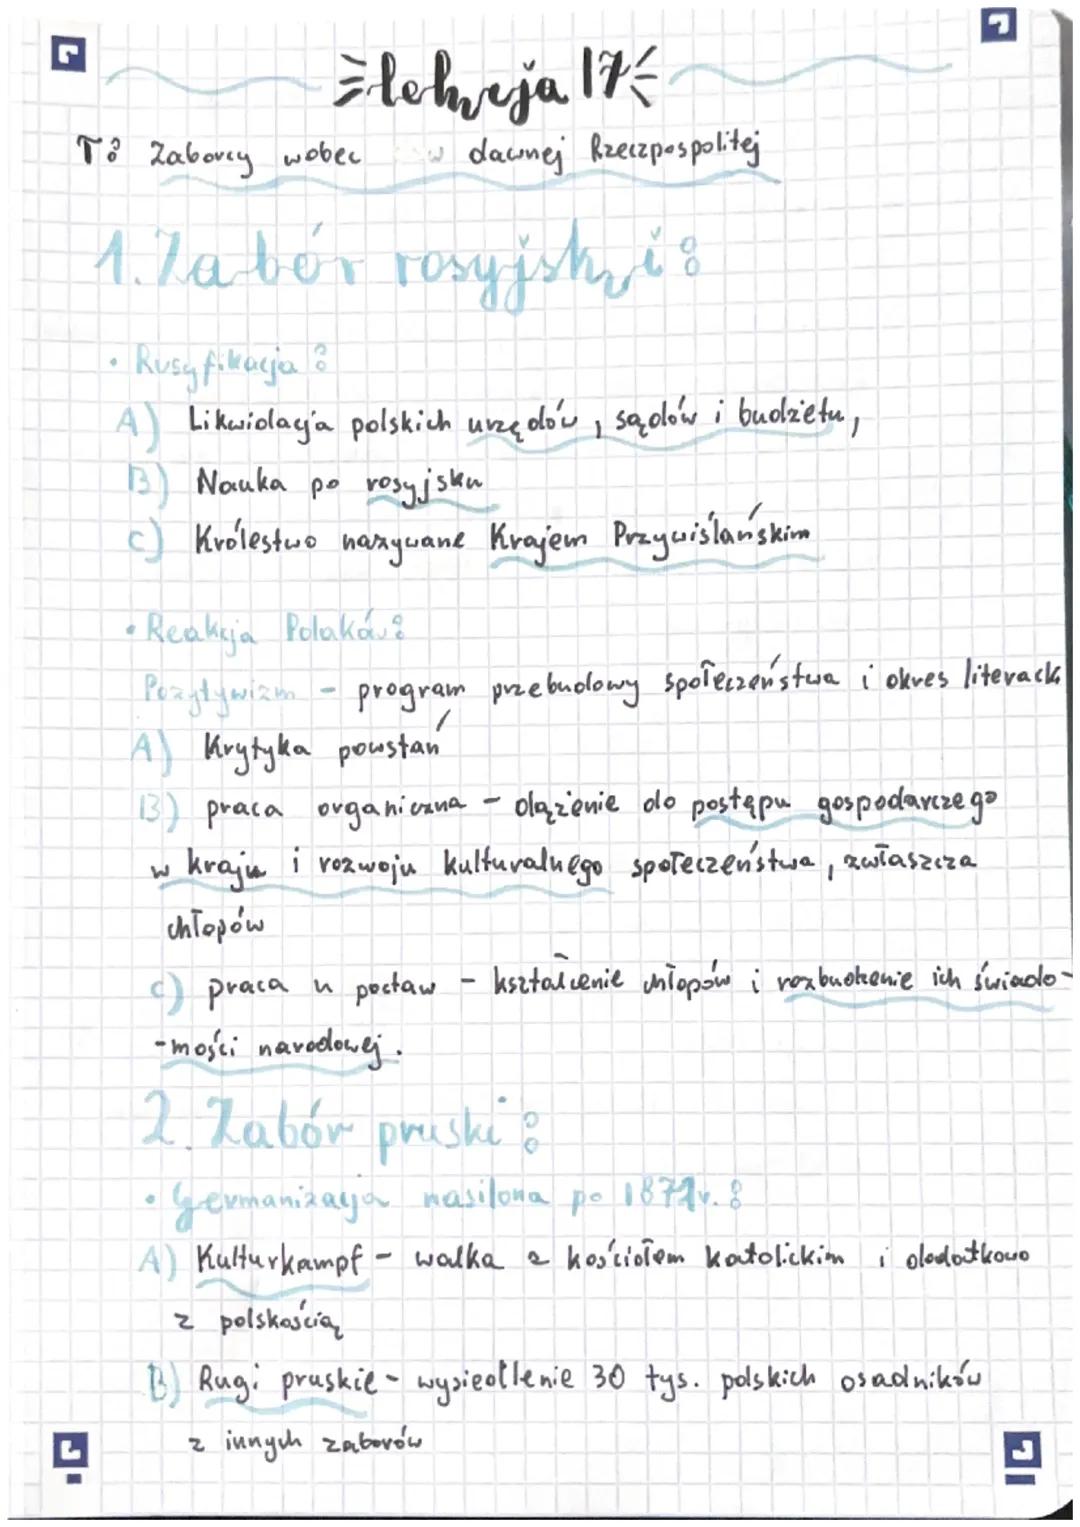 lekcja 17
T: Zaborcy wobec w dawnej Rzeczpospolitej
1. Zabór rosyjski:
• Rusyfikacja:
A) Likwidacja polskich urzędów, sądów i budżetu,
B) Nauka po rosyjsku
C) Królestwo nazywane Krajem Przywiślańskim
• Reakcja Polaków:
Pozytywizm - program przebudowy społeczeństwa i okres literacki
A) Krytyka powstań
B) praca organiczna - dążenie do postępu gospodarczego
w kraju i rozwoju kulturalnego społeczeństwa, zwłaszcza
chłopów
C) praca u podstaw - kształcenie chłopów i rozbudzenie ich świado-
-mości narodowej.
2. Zabór pruski:
• Germanizacja nasilona po 1871r.:
A) Kulturkampf - walka z kościołem katolickim i dodatkowo
z polskością
B) Rugi pruskie - wysiedlenie 30 tys. polskich osadników
z innych zaborów